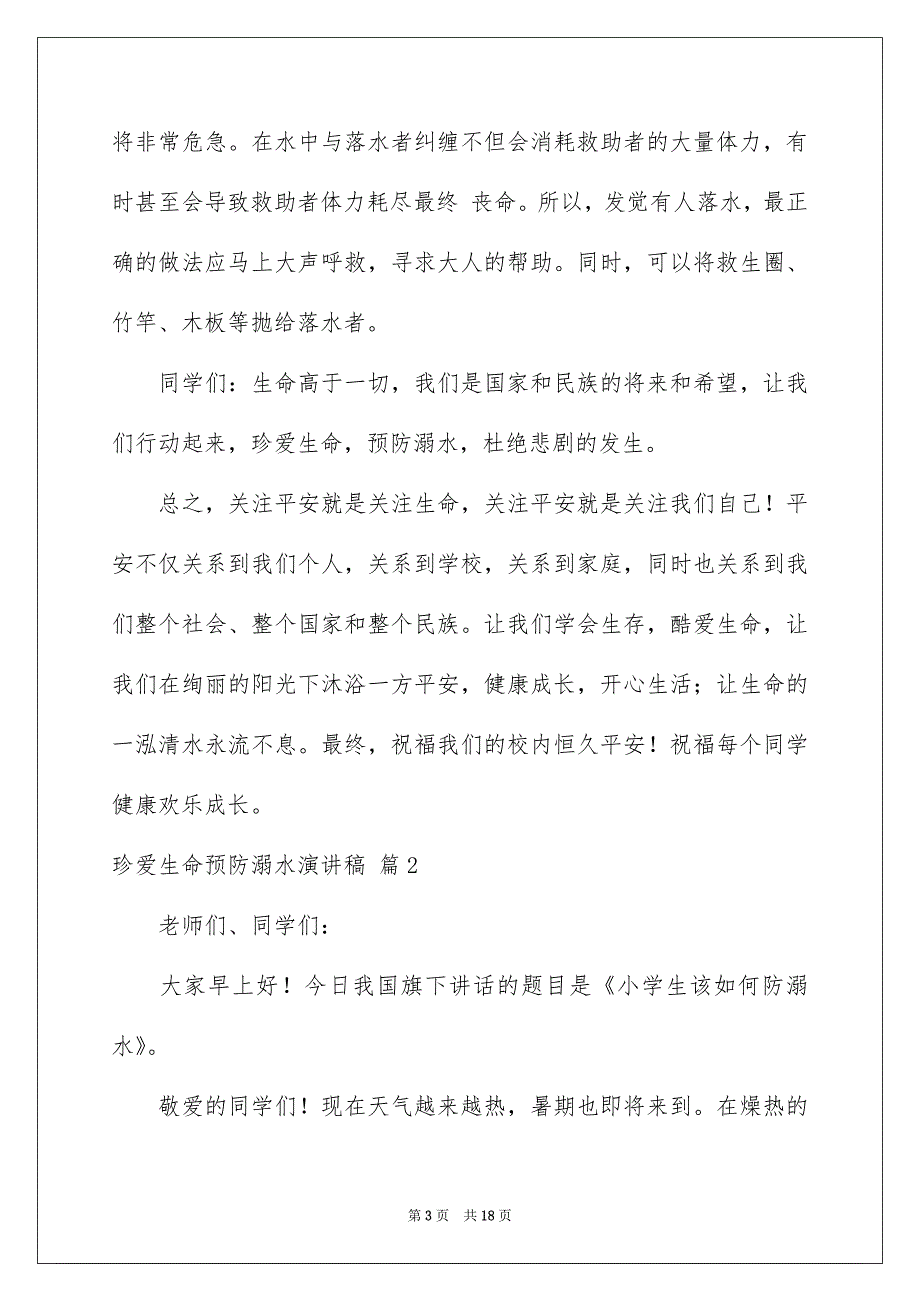 将非常危急。在水中与落水者纠缠不但会消耗救助者的大量体力，有
时甚至会导致救助者体力耗尽最终 丧命。所以，发觉有人落水，最正
确的做法应马上大声呼救，寻求大人的帮助。同时，可以将救生圈、
竹竿、木板等抛给落水者。
同学们：生命高于一切，我们是国家和民族的将来和希望，让我
们行动起来，珍爱生命，预防溺水，杜绝悲剧的发生。
总之，关注平安就是关注生命，关注平安就是关注我们自己！平
安不仅关系到我们个人，关系到学校，关系到家庭，同时也关系到我
们整个社会、整个国家和整个民族。让我们学会生存，酷爱生命，让
我们在绚丽的阳光下沐浴一方平安，健康成长，开心生活；让生命的
一泓清水永流不息。最终，祝福我们的校内恒久平安！祝福每个同学
健康欢乐成长。
珍爱生命预防溺水演讲稿 篇2
老师们、同学们：
大家早上好！今日我国旗下讲话的题目是《小学生该如何防溺
水》。
敬爱的同学们！现在天气越来越热，暑期也即将来到。在燥热的
第 3 页 共 18 页